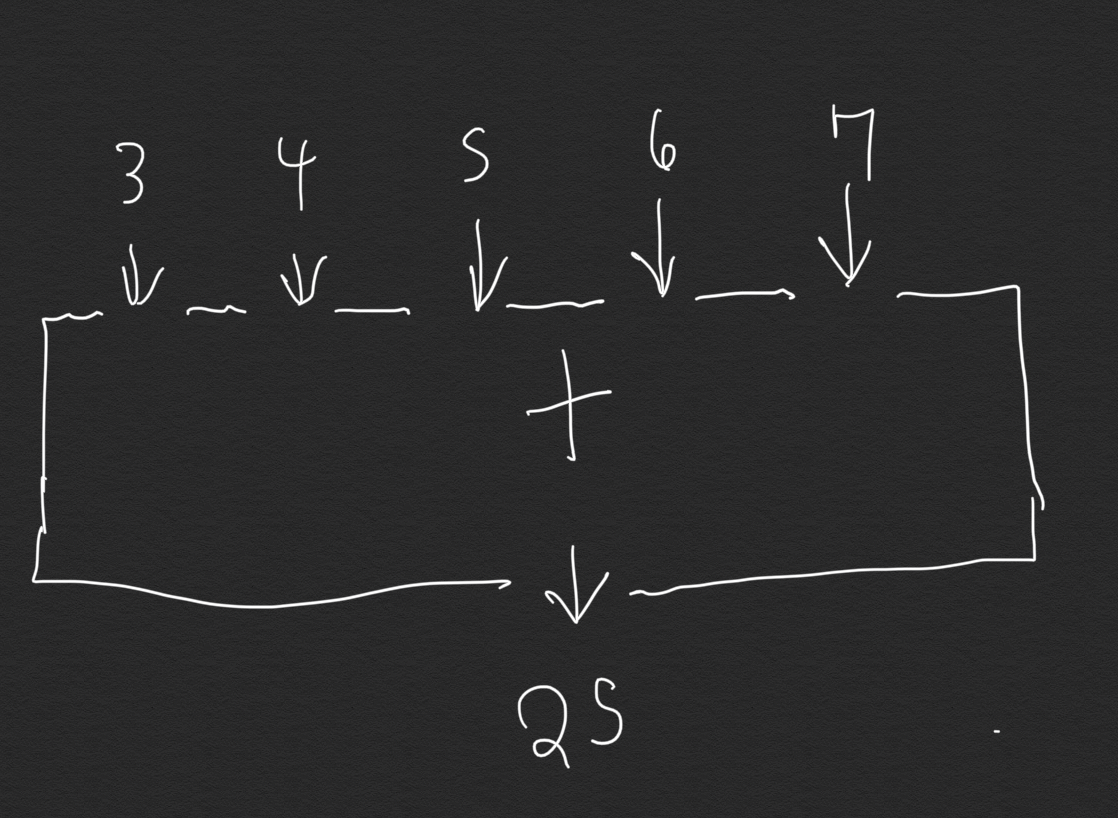 3 4 5 6 7
+
25